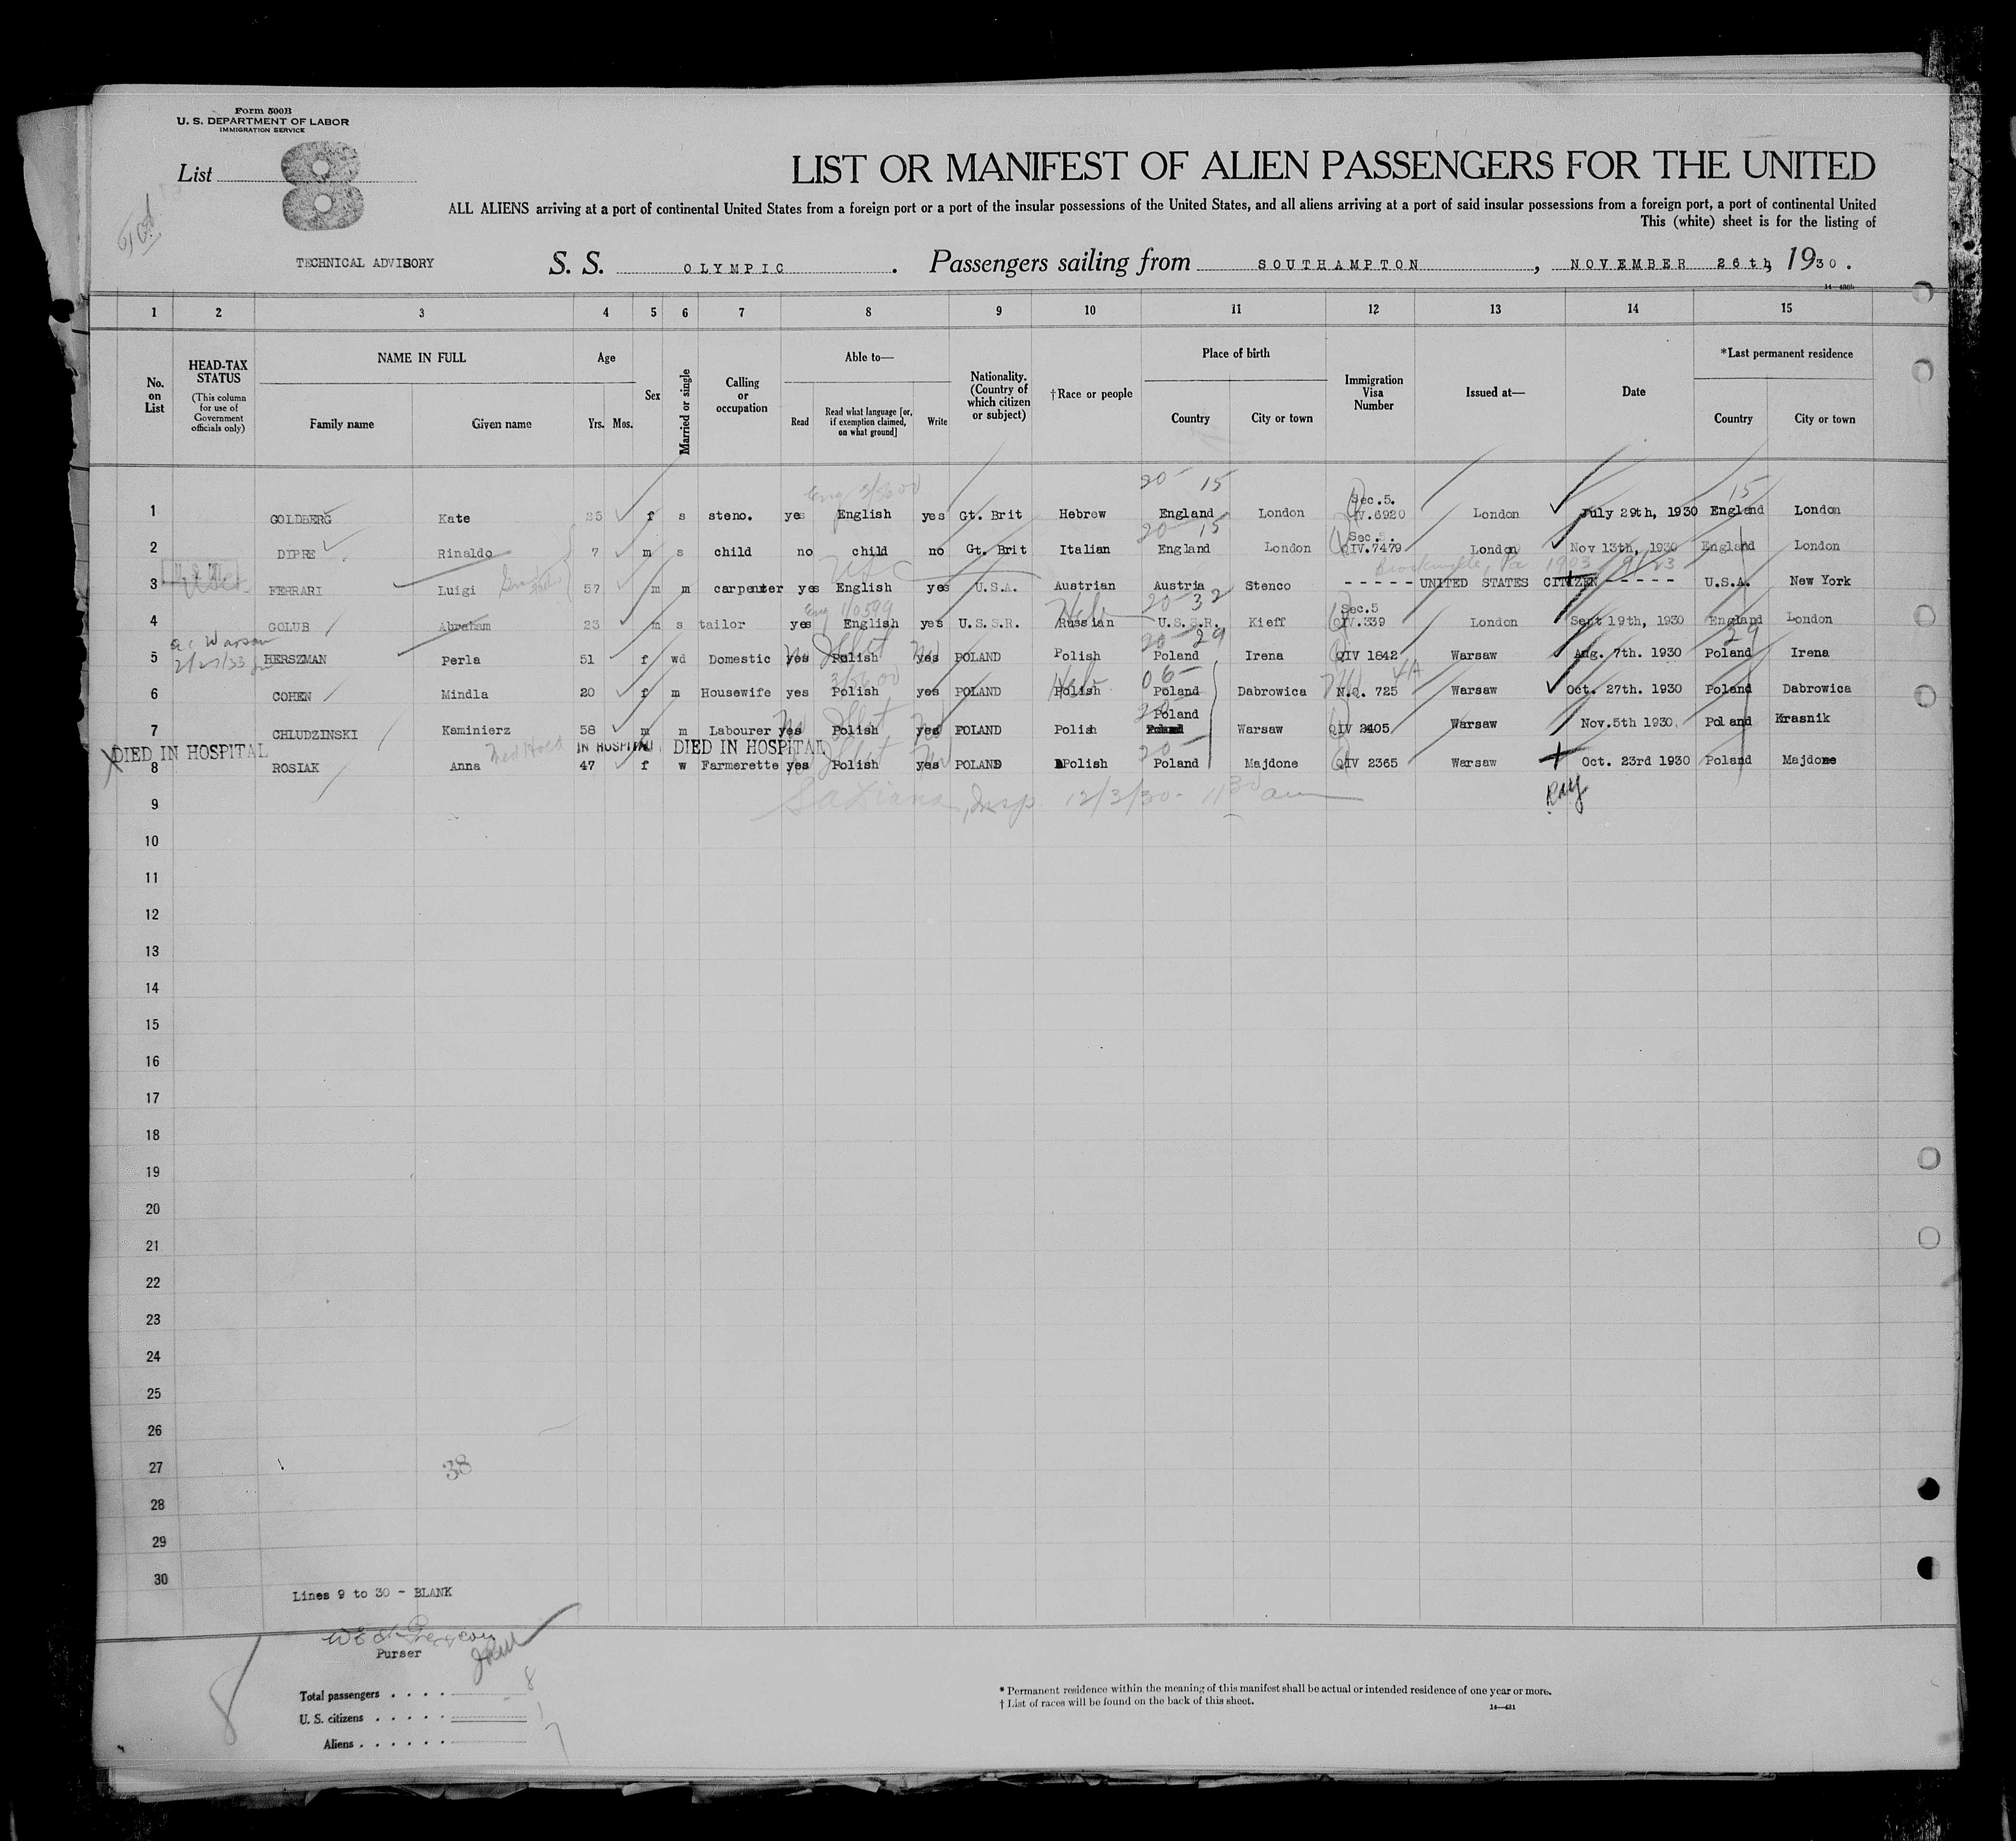 Form 500B
U. S. DEPARTMENT OF LABOR
IMMIGRATION SERVICE
List 8
LIST OR MANIFEST OF ALIEN PASSENGERS FOR THE UNITED
ALL ALIENS arriving at a port of continental United States from a foreign port or a port of the insular possessions of the United States, and all aliens arriving at a port of said insular possessions from a foreign port, a port of continental United
This (white) sheet is for the listing of
TECHNICAL ADVISORY S. S. OLYMPIC. Passengers sailing from SOUTHAMPTON, NOVEMBER 26th, 1930.
1 2 3 4 5 6 7 8 9 10 11 12 13 14 15
No. on List
HEAD-TAX STATUS
(This column for use of Government officials only)
NAME IN FULL
Family name Given name
Age
Yrs. Mos.
Sex
Married or single
Calling or occupation
Able to—
Read Read what language [or, if exemption claimed, on what ground] Write
Nationality. (Country of which citizen or subject)
†Race or people
Place of birth
Country City or town
Immigration Visa Number
Issued at—
Date
*Last permanent residence
Country City or town
20 15 15
Eng
Sec.5.
1 GOLDBERG Kate 25 f s steno. yes English yes Gt. Brit Hebrew England London QIV.6920 London July 29th, 1930 England London
20 15
Sec.
2 DIPRE Rinaldo 7 m s child no child no Gt. Brit Italian England London QIV.7479 London Nov 13th, 1930 England London
Brookville, Pa 1903
3 FERRARI Luigi 57 m m carpenter yes English yes U.S.A. Austrian Austria Stenco - - - - - UNITED STATES CITIZEN - - - - - U.S.A. New York
Eng 10599 Heb 20 32
Sec.5
4 GOLUB Abraham 23 m s tailor yes English yes U.S.S.R. Russian U.S.S.R. Kieff QIV.339 London Sept 19th, 1930 England London
2/27/33
20 29 29
5 HERSZMAN Perla 51 f wd Domestic yes Polish yes POLAND Polish Poland Irena QIV 1842 Warsaw Aug. 7th. 1930 Poland Irena
Heb 06 4A
6 COHEN Mindla 20 f m Housewife yes Polish yes POLAND Polish Poland Dabrowica N.Q. 725 Warsaw Oct. 27th. 1930 Poland Dabrowica
7 CHLUDZINSKI Kaminierz 58 m m Labourer yes Polish yes POLAND Polish Poland Warsaw QIV 2405 Warsaw Nov.5th 1930. Poland Krasnik
DIED IN HOSPITAL Med Hold IN HOSPITAL DIED IN HOSPITAL
8 ROSIAK Anna 47 f w Farmerette yes Polish yes POLAND Polish Poland Majdone QIV 2365 Warsaw Oct. 23rd 1930 Poland Majdone
Insp. 12/3/30 - 11 30 am Ray
9
10
11
12
13
14
15
16
17
18
19
20
21
22
23
24
25
26
27 38
28
29
30
Lines 9 to 30 - BLANK
Purser
8
Total passengers . . . . 8
U. S. citizens . . . . . 1
Aliens . . . . . . 7
* Permanent residence within the meaning of this manifest shall be actual or intended residence of one year or more.
† List of races will be found on the back of this sheet.
14—431